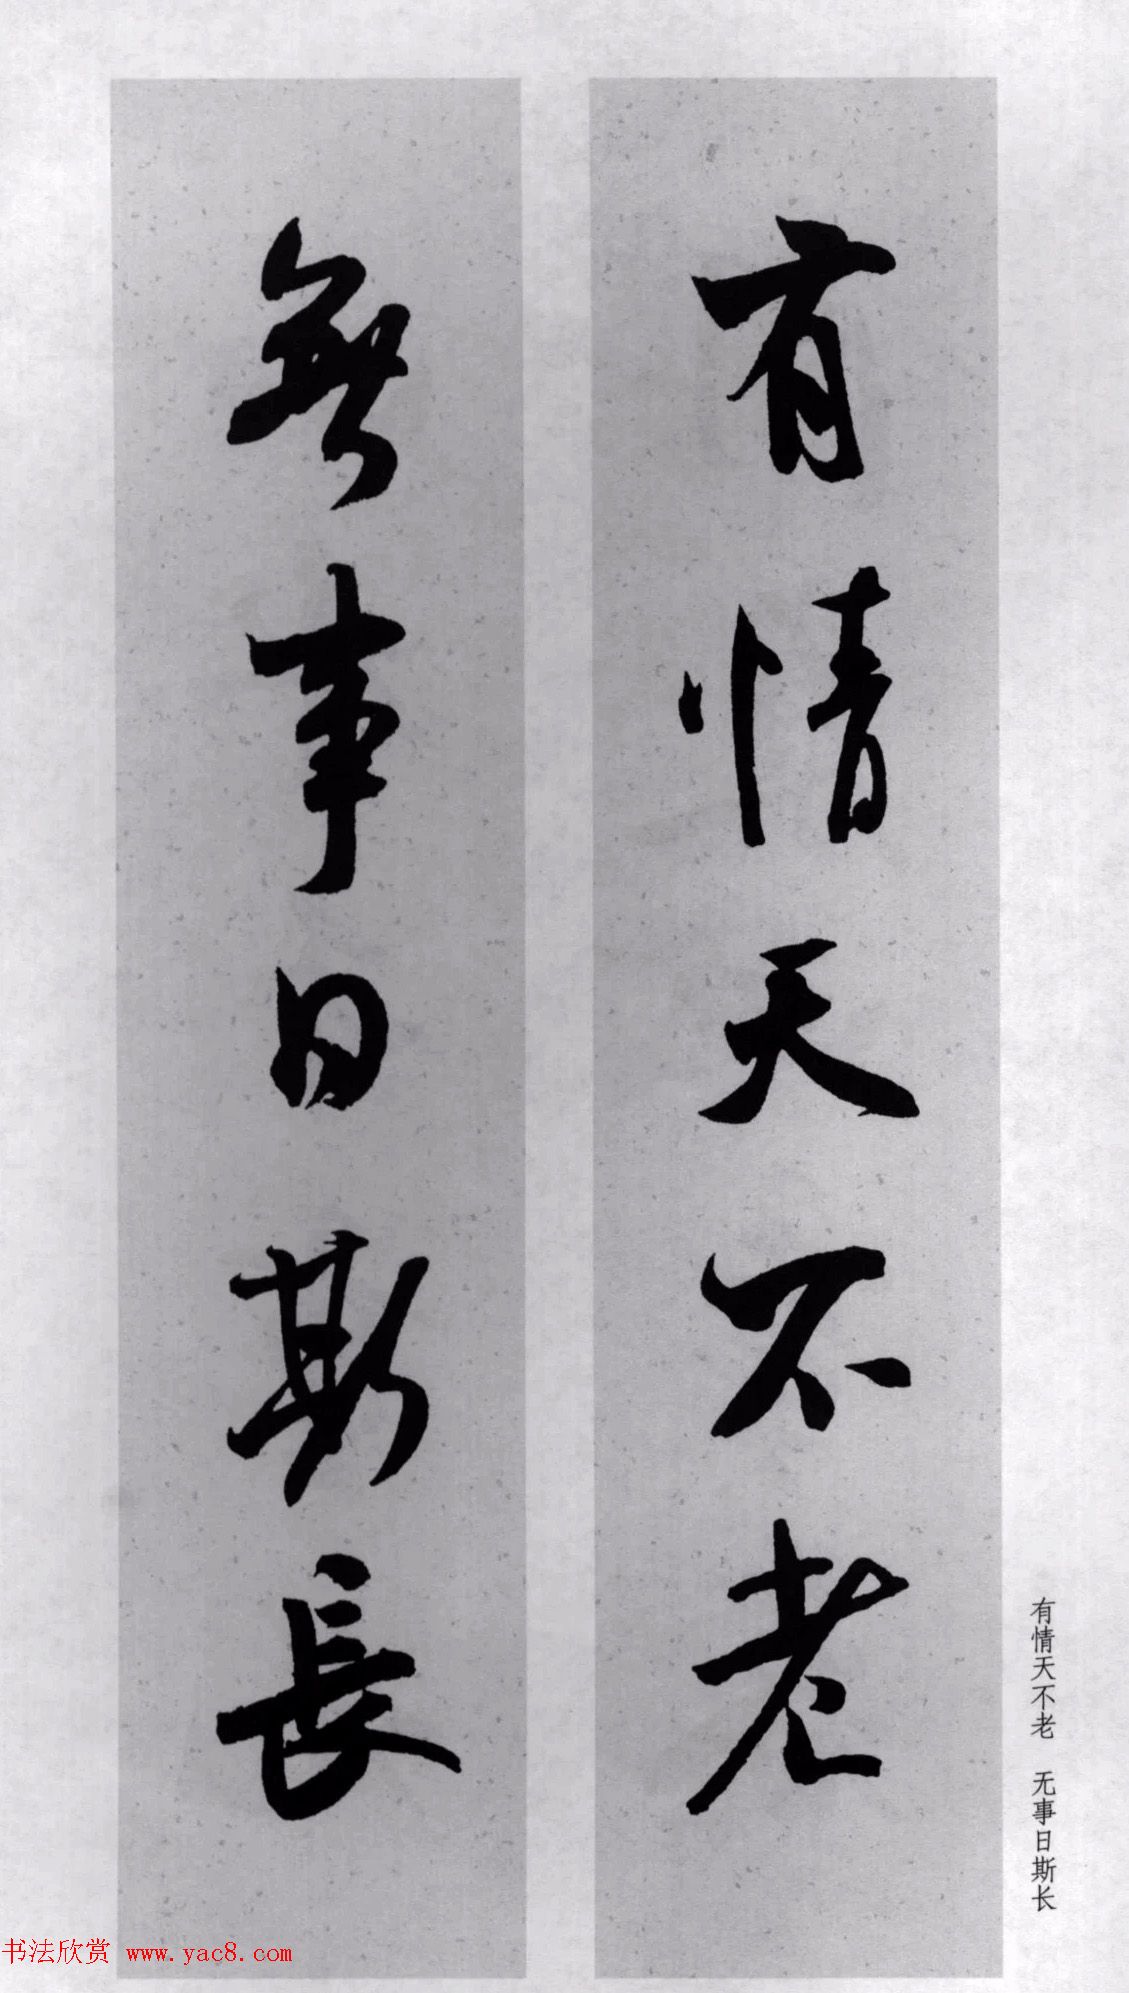 有情天不老
無事日斯長
有情天不老　无事日斯长
书法欣赏 www.yac8.com